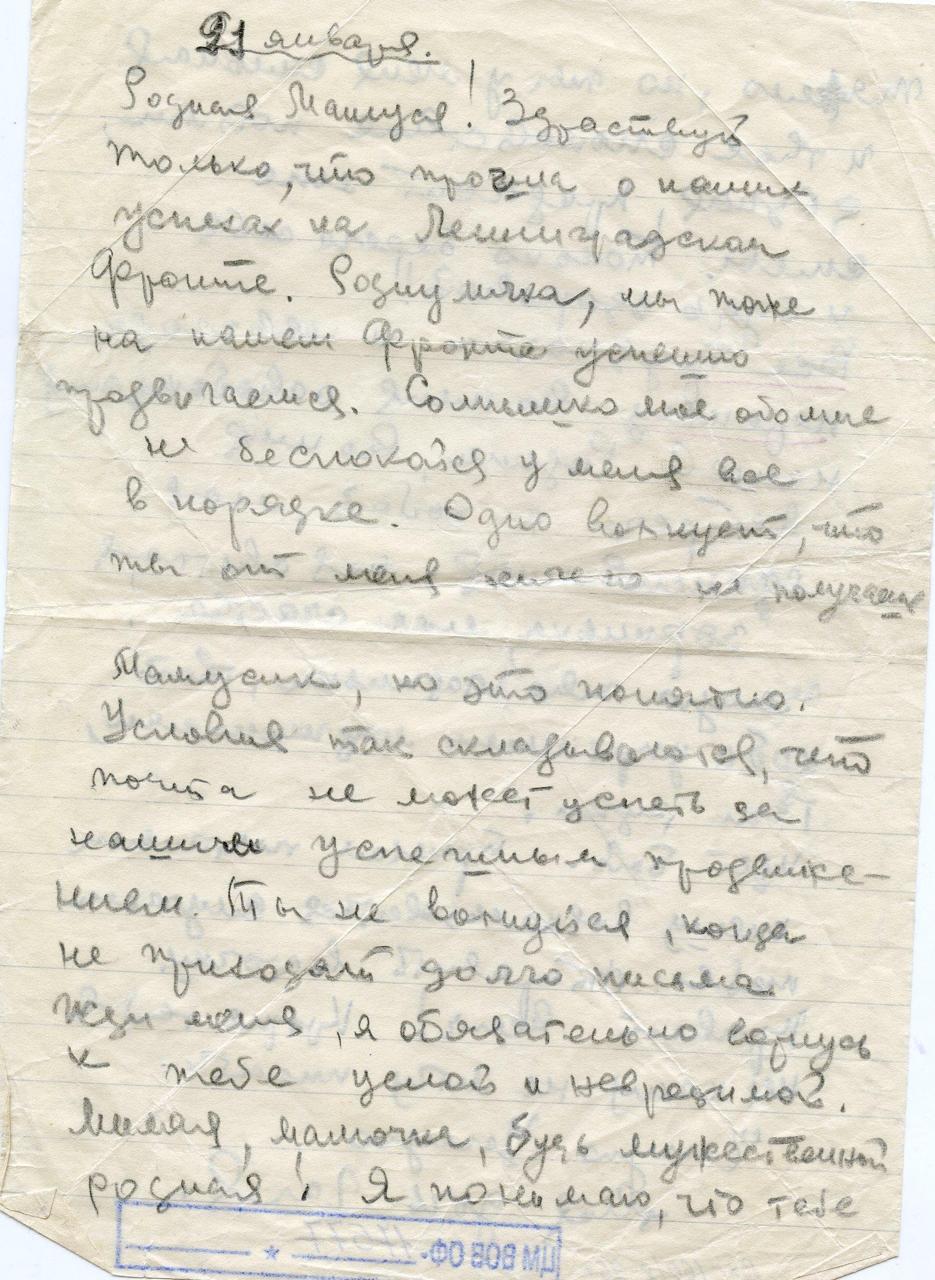 21 января.
Родная Мамуся! Здраствуй
только, что прочла о наших
успехах на Ленинградском
фронте. Роднуличка, мы тоже
на нашем фронте успешно
продвигаемся. Солнышко моё обо мне
не беспокойся у меня все
в порядке. Одно волнует, что
ты от меня ничего не получаешь
Мамусик, но это понятно.
Условия так складываются, что
почта не может успеть за
нашим успешным продвиже-
нием. Ты не волнуйся, когда
не приходят долго письма.
Жди меня, я обязательно вернусь
к тебе целой и невредимой.
Милая, мамочка, будь мужественной
родная! Я понимаю, что тебе
ЦМ ВОВ ОФ-